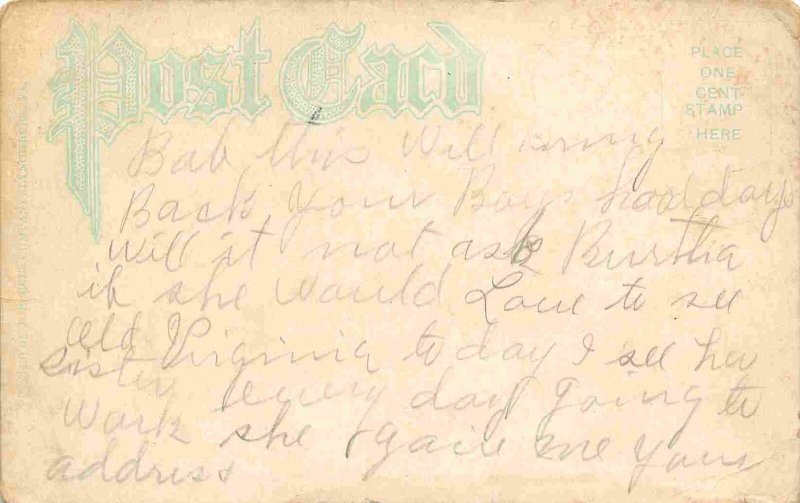 Post Card
PLACE
ONE
CENT
STAMP
HERE
Bab this will bring
Back your Boys hood days
will it not ask Burtha
if she would Love to see
old Virginia to day I see her
sister every day going to
work she gave me your
address